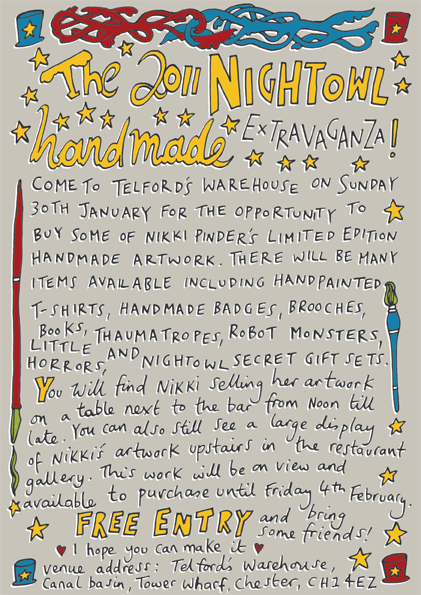 The 2011 NIGHTOWL
handmade EXTRAVAGANZA!
COME TO TELFORD'S WAREHOUSE ON SUNDAY
30TH JANUARY FOR THE OPPORTUNITY TO
BUY SOME OF NIKKI PINDER'S LIMITED EDITION
HANDMADE ARTWORK. THERE WILL BE MANY
ITEMS AVAILABLE INCLUDING HANDPAINTED
T-SHIRTS, HANDMADE BADGES, BROOCHES,
BOOKS, THAUMATROPES, ROBOT MONSTERS,
LITTLE HORRORS, AND NIGHTOWL SECRET GIFT SETS.
You will find Nikki selling her artwork
on a table next to the bar from Noon till
late. You can also still see a large display
of Nikki's artwork upstairs in the restaurant
gallery. This work will be on view and
available to purchase until Friday 4th February.
FREE ENTRY and bring some friends!
I hope you can make it
venue address: Telford's Warehouse,
Canal basin, Tower Wharf, Chester, CH1 4EZ